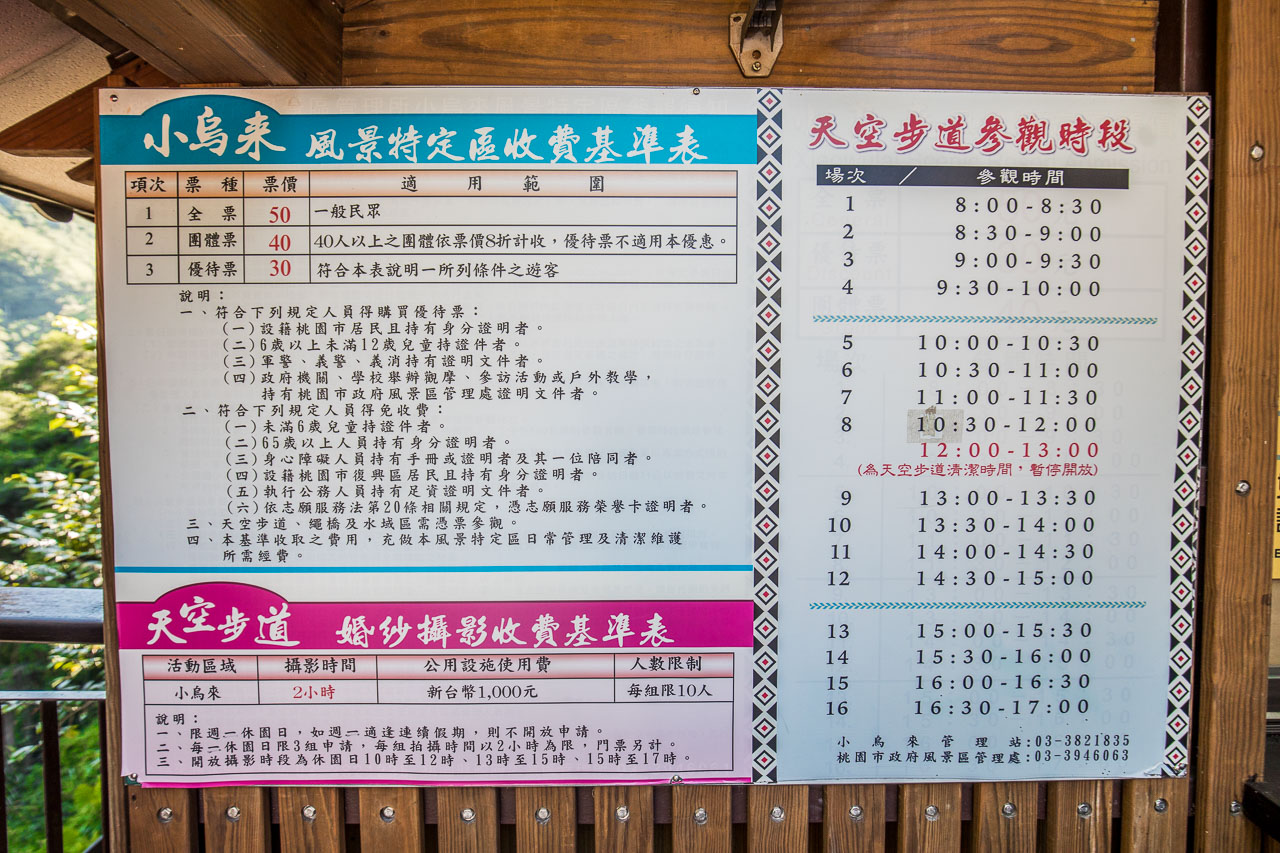 小烏來 風景特定區收費基準表
項次 票種 票價 適用範圍
1 全票 50 一般民眾
2 團體票 40 40人以上之團體依票價8折計收，優待票不適用本優惠。
3 優待票 30 符合本表說明一所列條件之遊客
說明：
一、符合下列規定人員得購買優待票：
(一)設籍桃園市居民且持有身分證明者。
(二)6歲以上未滿12歲兒童持證件者。
(三)軍警、義警、義消持有證明文件者。
(四)政府機關、學校舉辦觀摩、參訪活動或戶外教學，
持有桃園市政府風景區管理處證明文件者。
二、符合下列規定人員得免收費：
(一)未滿6歲兒童持證件者。
(二)65歲以上人員持有身分證明者。
(三)身心障礙人員持有手冊或證明者及其一位陪同者。
(四)設籍桃園市復興區居民且持有身分證明者。
(五)執行公務人員持有足資證明文件者。
(六)依志願服務法第20條相關規定，憑志願服務榮譽卡證明者。
三、天空步道、繩橋及水域區需憑票參觀。
四、本基準收取之費用，充做本風景特定區日常管理及清潔維護
所需經費。
天空步道 婚紗攝影收費基準表
活動區域 攝影時間 公用設施使用費 人數限制
小烏來 2小時 新台幣1,000元 每組限10人
說明：
一、限週一休園日，如週一適逢連續假期，則不開放申請。
二、每一休園日限3組申請，每組拍攝時間以2小時為限，門票另計。
三、開放攝影時段為休園日10時至12時、13時至15時、15時至17時。
天空步道參觀時段
場次 ／ 參觀時間
1 8:00-8:30
2 8:30-9:00
3 9:00-9:30
4 9:30-10:00
5 10:00-10:30
6 10:30-11:00
7 11:00-11:30
8 10:30-12:00
12:00-13:00
(為天空步道清潔時間，暫停開放)
9 13:00-13:30
10 13:30-14:00
11 14:00-14:30
12 14:30-15:00
13 15:00-15:30
14 15:30-16:00
15 16:00-16:30
16 16:30-17:00
小烏來管理站:03-3821835
桃園市政府風景區管理處:03-3946063